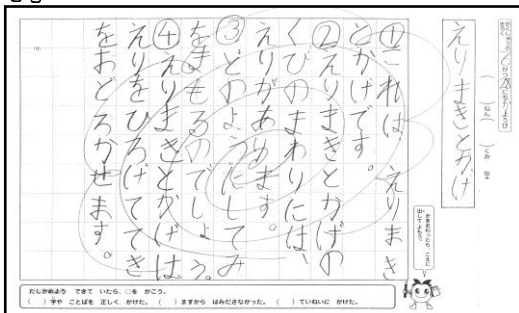 えりまきとかげ
(　)ねん(　)くみ
①これは、えりまき
とかげです。
②えりまきとかげの
くびのまわりには、
えりがあります。
③どのようにしてみ
をまもるのでしょう。
④えりまきとかげは
えりをひろげててき
をおどろかせます。
かきおわったら、こえに
出してよもう。
たしかめよう できて いたら、○を かこう。
(　)字や ことばを 正しく かけた。(　)ますから はみださなかった。(　)ていねいに かけた。